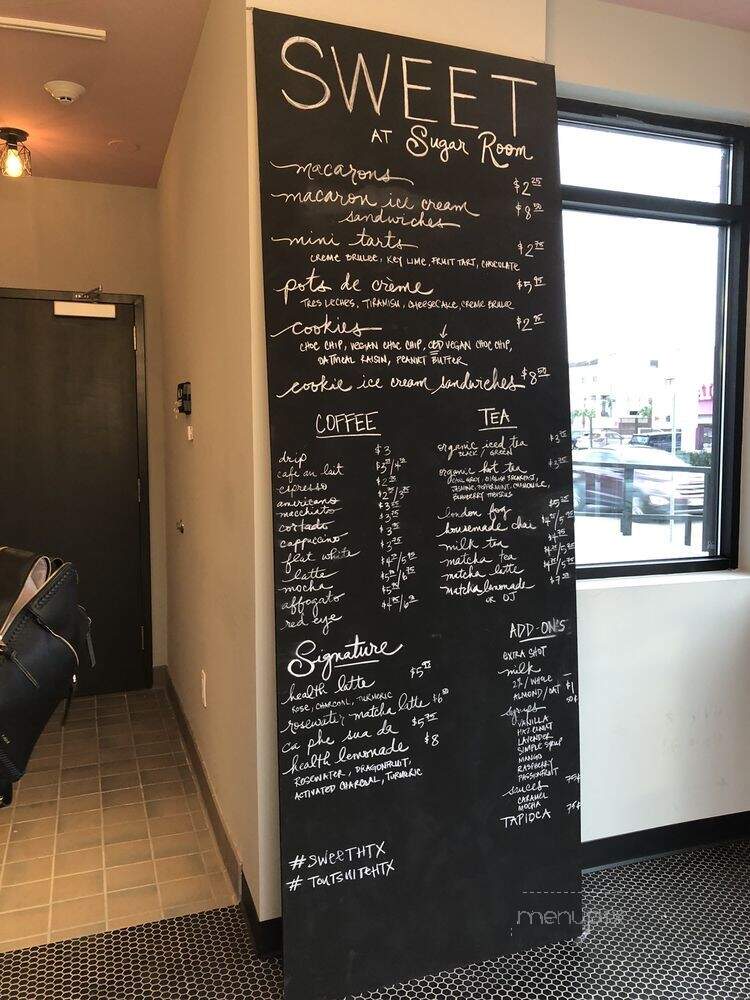 SWEET
AT Sugar Room
macarons $2.25
macaron ice cream $8.50
sandwiches
mini tarts $2.75
CREME BRULEE, KEY LIME, FRUIT TART, CHOCOLATE
pots de crème $5.95
TRES LECHES, TIRAMISU, CHEESECAKE, CREME BRULEE
cookies $2.75
CHOC CHIP, VEGAN CHOC CHIP, CBD VEGAN CHOC CHIP,
OATMEAL RAISIN, PEANUT BUTTER
cookie ice cream sandwiches $8.50
COFFEE
drip $3
cafe au lait
espresso
americano
macchiato
cortado
cappuccino
flat white
latte
mocha
affogato
red eye
TEA
organic iced tea
BLACK / GREEN
organic hot tea
EARL GREY, ENGLISH BREAKFAST,
JASMINE, PEPPERMINT, CHAMOMILE,
BLUEBERRY HIBISCUS
london fog
housemade chai
milk tea
matcha tea
matcha latte
matcha lemonade
OR OJ
Signature
health latte
ROSE, CHARCOAL, TURMERIC
rosewater matcha latte
ca phe sua da
health lemonade $8
ROSEWATER, DRAGONFRUIT,
ACTIVATED CHARCOAL, TURMERIC
ADD-ON'S
EXTRA SHOT
milk
2% / WHOLE
ALMOND / OAT $1
syrups 50¢
VANILLA
HAZELNUT
LAVENDER
SIMPLE SYRUP
MANGO
RASPBERRY
PASSIONFRUIT
sauces 75¢
CARAMEL
MOCHA
TAPIOCA 75¢
#SWEETHTX
#TOUTSUITEHTX
menupix